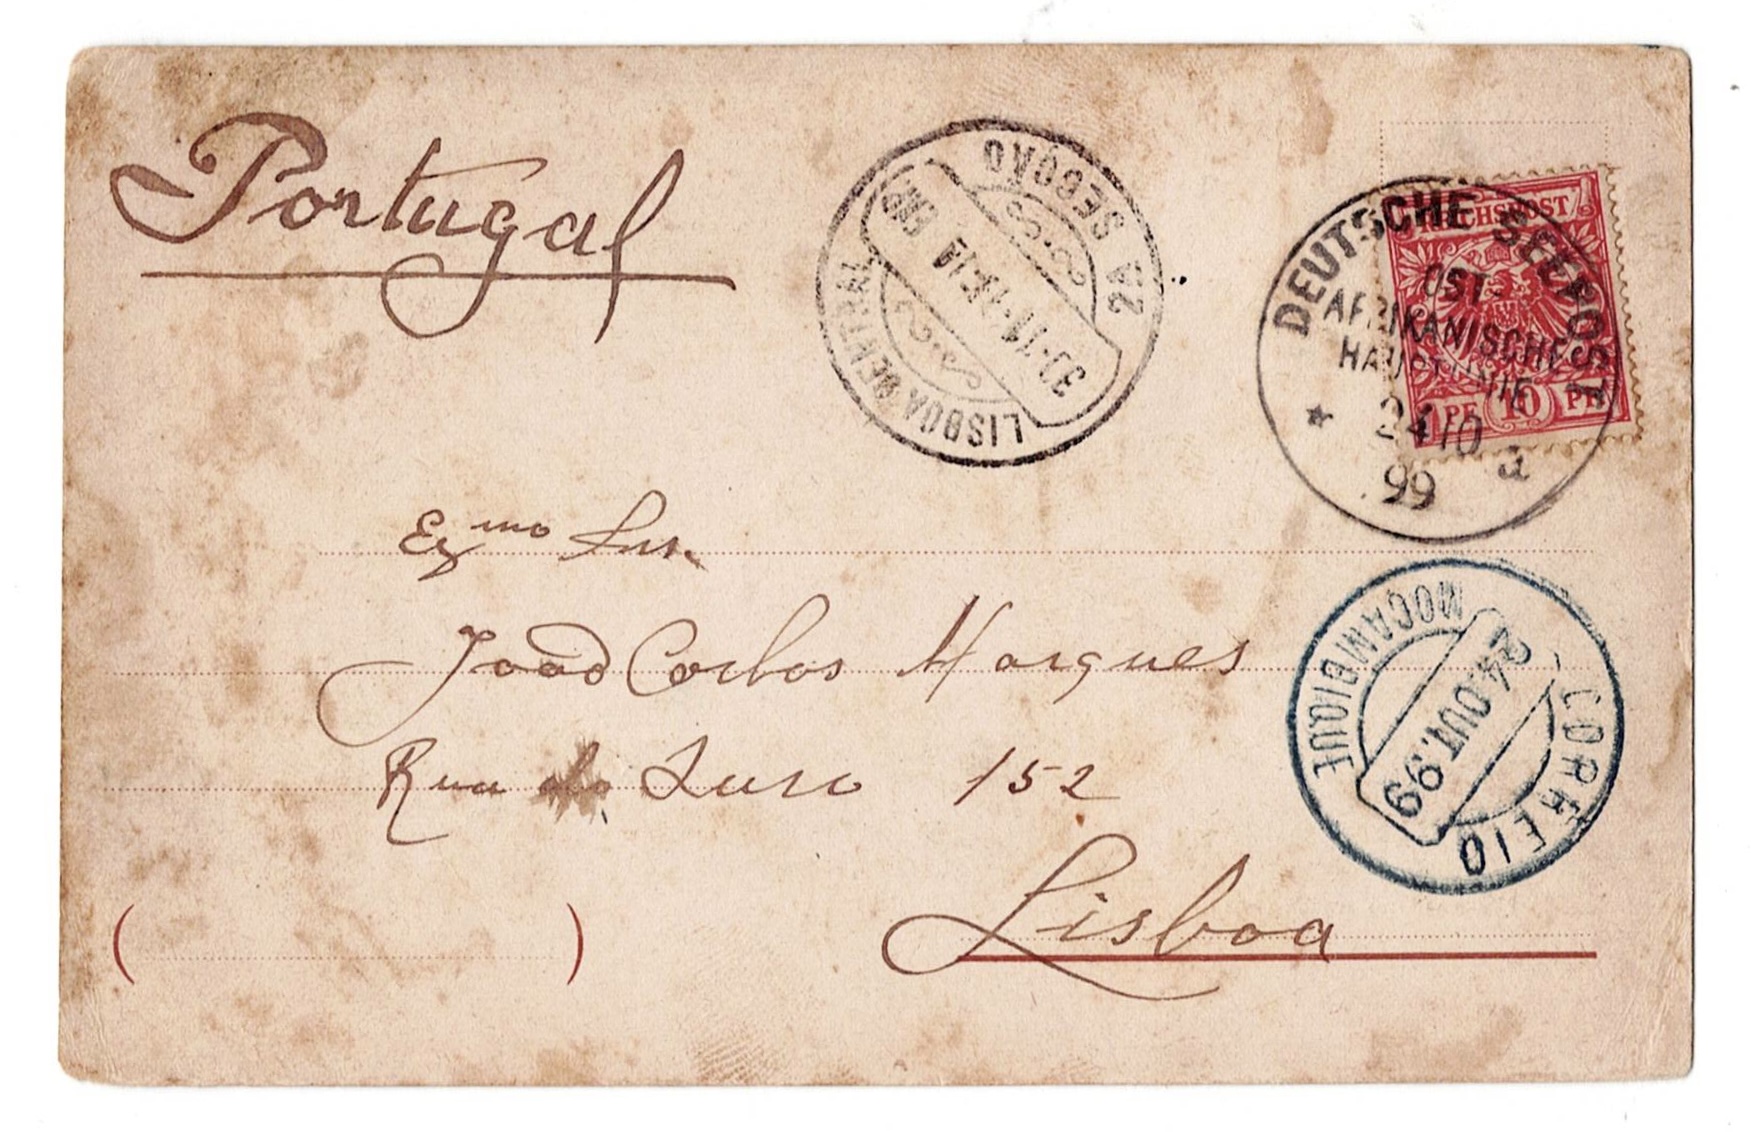 Portugal
2A SECÇÃO
30·11·
LISBOA CENTRAL
REICHSPOST
10
PF
PF
DEUTSCHE SEEPOST
OST-
AFRIKANISCHE
HAUPTLINIE
24 10
99
a
Exmo Snr.
João Carlos Marques
Rua do 152
Lisboa
MOÇAMBIQUE
24.OUT.99
CORREIO